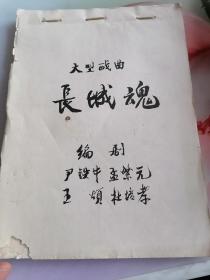 大型戏曲
長城魂
编剧
尹洪中 孟繁元
王頌 杜培孝